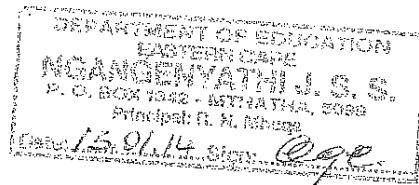 DEPARTMENT OF EDUCATION
EASTERN CAPE
NGANGENYATHI J. S. S.
P. O. BOX 1342 - MTHATHA, 5099
Principal: N. N.
Date: 15.01.14 Sign: